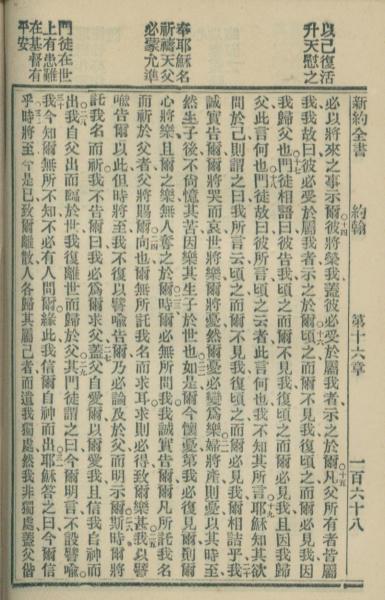 新約全書
約翰
第十六章
一百六十八
以己復活
升天慰之
奉耶穌名
祈禱天父
必蒙允準
門徒在世
上有患難
在基督有
平安
必以將來之事示爾彼將榮我蓋彼必受於屬我者示之於爾凡父所有者皆屬
我我故曰彼必受於屬我者示之於爾頃之而爾不見我復頃之而爾必見我因
我歸父也門徒相語曰彼告我頃之而爾不見我復頃之而爾必見我且因我歸
父此言何也門徒故曰彼所言頃之云者此言何也我不知其所言耶穌知其欲
問於己則謂之曰我所言云頃之而爾不見我復頃之而爾必見我爾相詰乎我
誠實告爾爾將哭而哀世將樂爾將憂然爾憂必變爲樂婦將產則憂以其時至
然生子後不尙憶其苦因樂其生子於世也如是爾今懷憂第我必復見爾則爾
心將樂且爾之樂無人奪之於爾時爾必無所問我我誠實告爾爾凡所託我名
而祈於父者父將賜爾向也爾無所託我名而求耳求則必得致爾樂甚我以譬
喩告爾以此但時將至我不復以譬喩告爾乃必論及於父而明示爾斯時爾將
託我名而祈我不告爾曰我必爲爾求父蓋父自愛爾以爾愛我且信我自神而
出我自父出而臨於世我復離世而歸於父其門徒謂之曰今爾明言不設譬喩
我今知爾無所不知不必有人問爾緣此我信爾自神而出耶穌答之曰今爾信
乎時將至今是已致爾離散人各歸其屬己者而遺我獨處然我非獨處蓋父偕